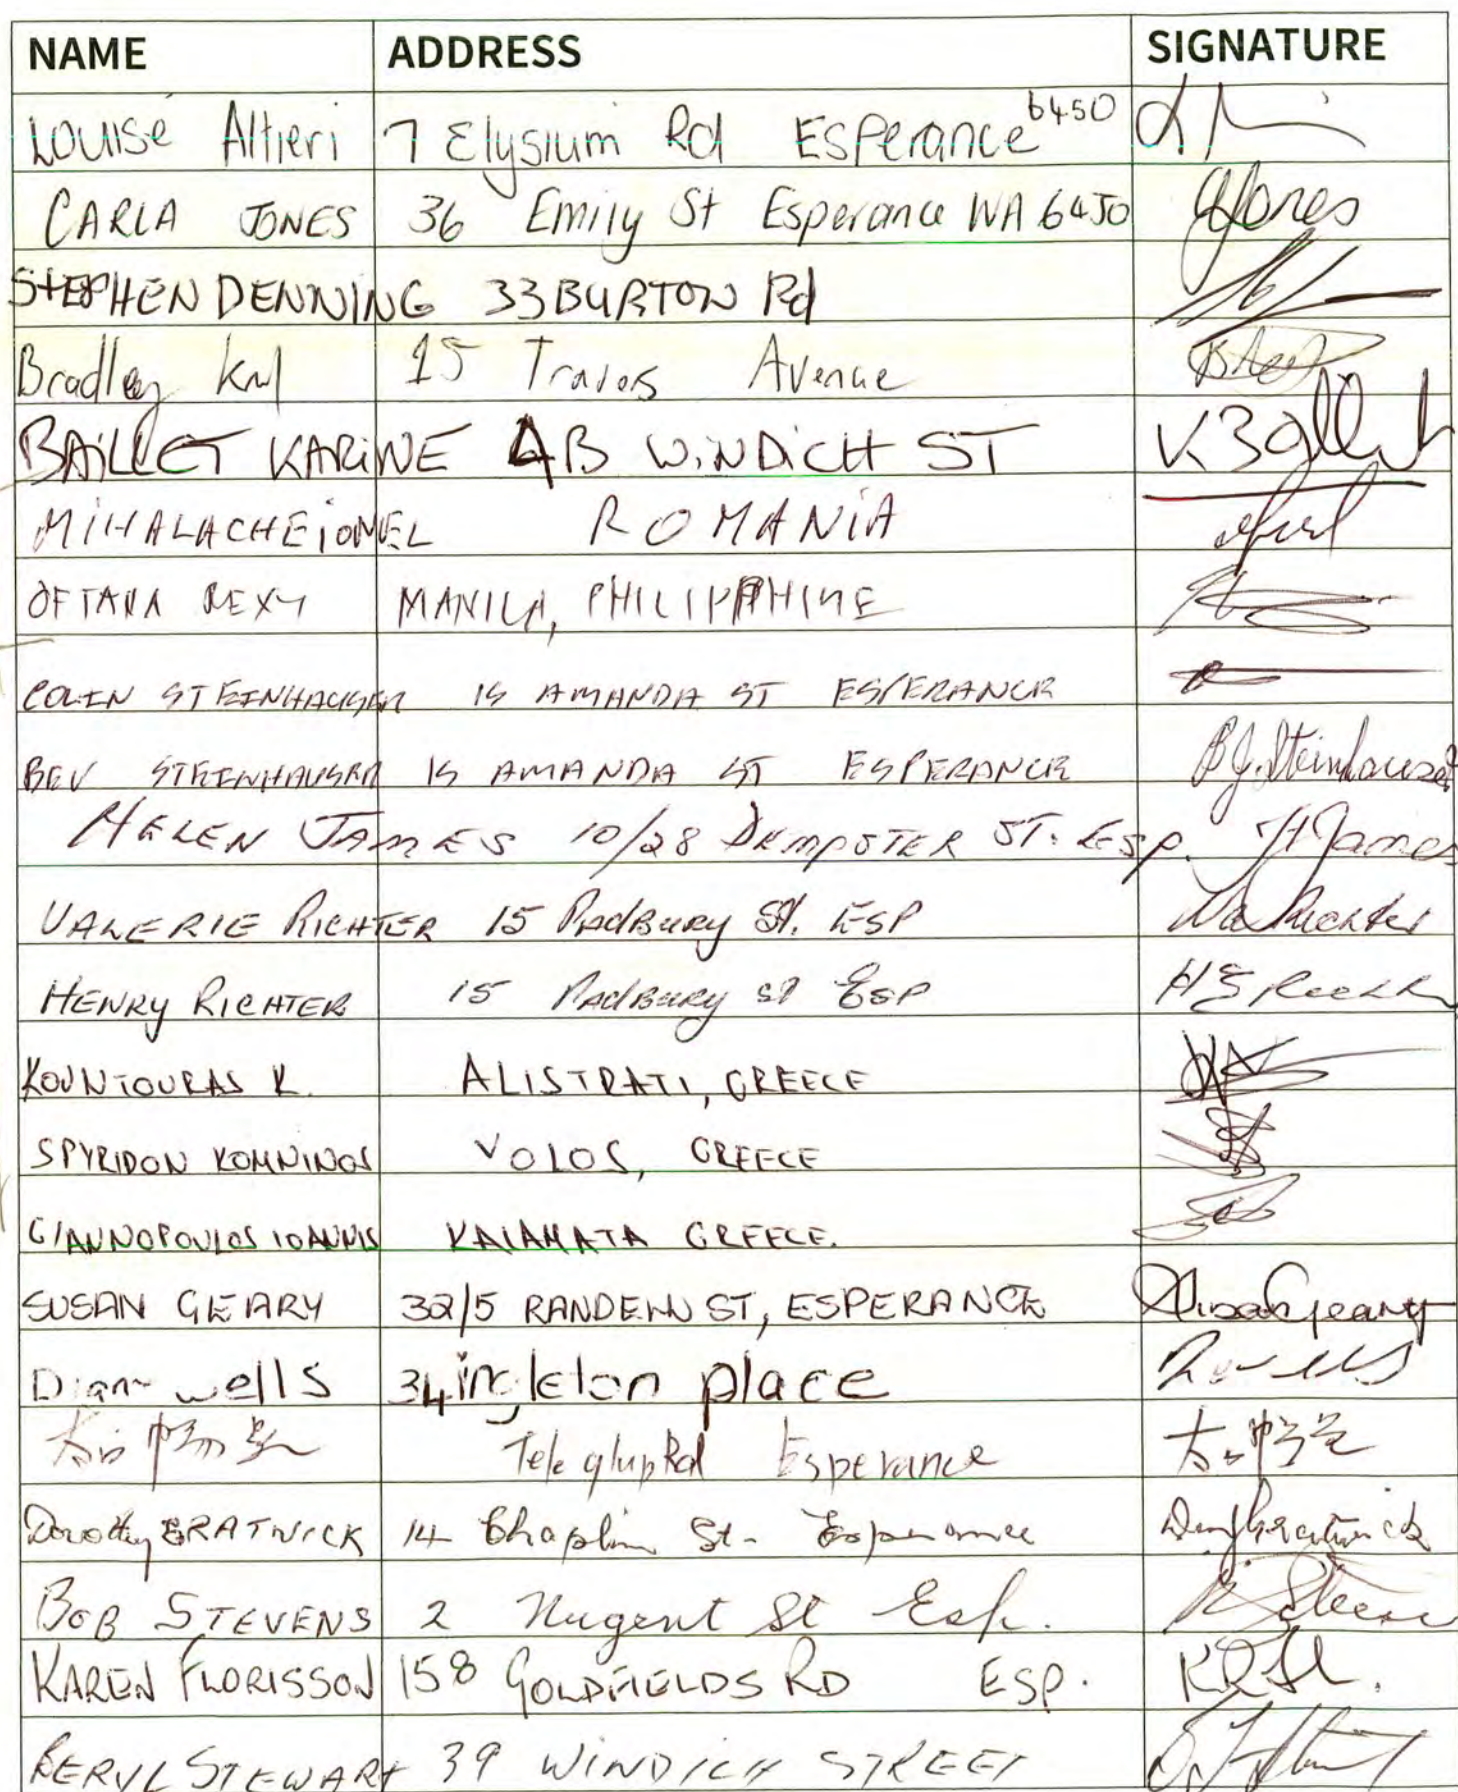 NAME ADDRESS SIGNATURE
Louise Altieri 7 Elysium Rd Esperance 6450
CARLA JONES 36 Emily St Esperance WA 6450 CJones
STEPHEN DENNING 33 BURTON Rd
Bradley 15 Avenue
BAILLET KARINE 4B WINDICH ST K Baillet
MIHALACHE IONEL ROMANIA
REXY MANILA, PHILIPPHINE
COLIN STEINHAUSER 15 AMANDA ST ESPERANCE
BEV STEINHAUSER 15 AMANDA ST ESPERANCE B J. Steinhauser
HELEN JAMES 10/28 DEMPSTER ST. ESP. H James
VALERIE RICHTER 15 PadBury St. ESP Richter
HENRY RICHTER 15 PadBury St ESP H
KOUNTOURAS K. ALISTRATI, GREECE
SPYRIDON KOMNINOS VOLOS, GREECE
GIANNOPOULOS IOANNIS KALAMATA GREECE.
SUSAN GEARY 32/5 RANDELL ST, ESPERANCE Susan Geary
Wells 34 place
Esperance
Dorothy GRATWICK 14 Chaplin St- Esperance Gratwick
BOB STEVENS 2 Nugent St Esp.
KAREN FLORISSON 158 GOLDFIELDS RD ESP.
BERYL STEWART 39 WINDICH STREET